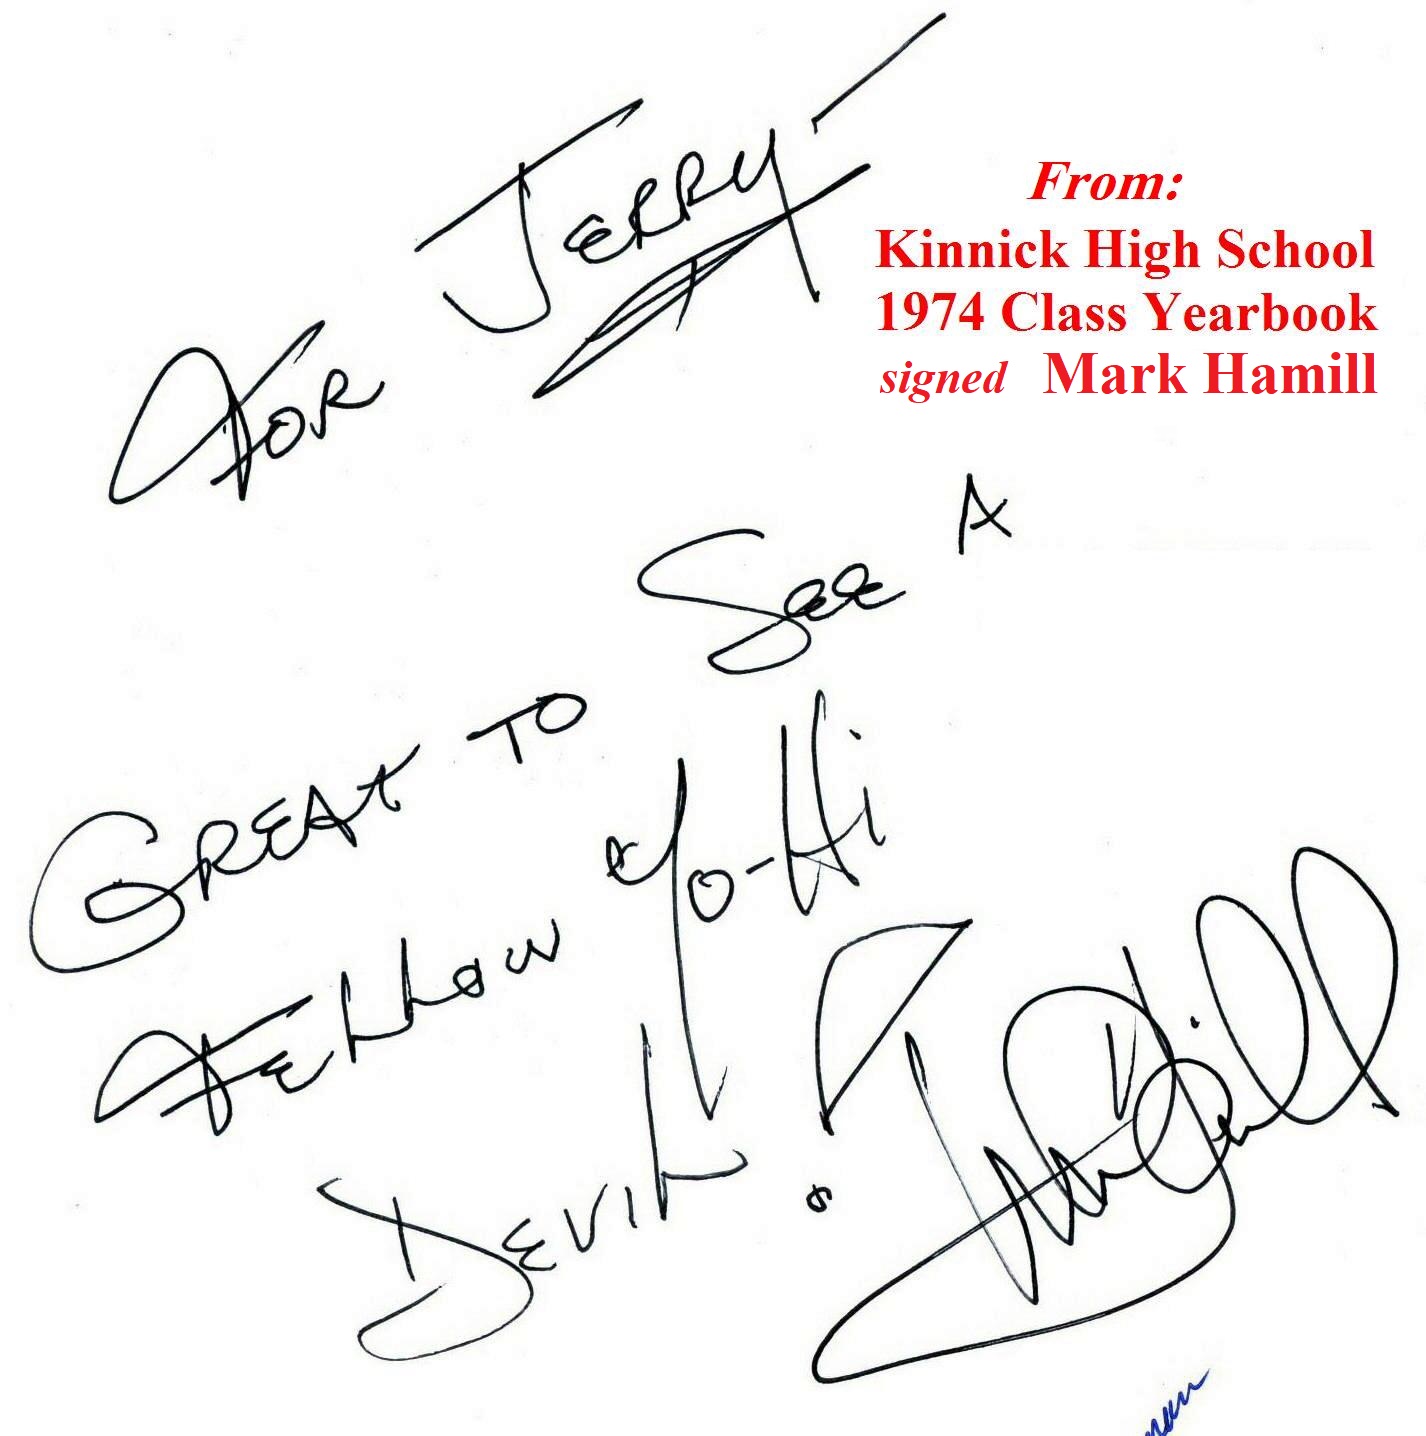 FOR JERRY-
From:
Kinnick High School
1974 Class Yearbook
signed Mark Hamill
GREAT TO SEE A
FELLOW YO-Hi
DEVIL!